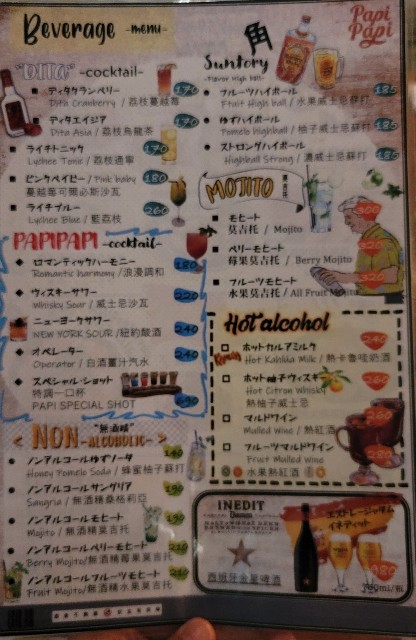 Beverage -menu-
Papi Papi
"DITA" -cocktail-
ディタクランベリー 170
Dita Cranberry / 荔枝蔓越莓
ディタエイジア 170
Dita Asia / 荔枝烏龍茶
ライチトニック 170
Lychee Tonic / 荔枝通寧
ピンクベイビー / Pink baby 180
蔓越莓可爾必斯沙瓦
ライチブルー 260
Lychee Blue / 藍荔枝
PAPIPAPI -cocktail-
ロマンティックハーモニー 180
Romantic harmony / 浪漫調和
ウィスキーサワー 220
Whisky Sour / 威士忌沙瓦
ニューヨークサワー 240
NEW YORK SOUR / 紐約酸酒
オペレーター 240
Operator / 白酒薑汁汽水
スペシャル・ショット
特調一口杯
PAPI SPECIAL SHOT
"無酒精"
< NON -ALCOHOLIC- >
ノンアルコールゆずソーダ 140
Honey Pomelo Soda / 蜂蜜柚子蘇打
ノンアルコールサングリア 190
Sangria / 無酒精桑格莉亞
ノンアルコールモヒート 190
Mojito / 無酒精莫吉托
ノンアルコールベリーモヒート 210
Berry Mojito / 無酒精莓果莫吉托
ノンアルコールフルーツモヒート 210
Fruit Mojito / 無酒精水果莫吉托
角
Suntory
-Flavor High ball-
フルーツハイボール 185
Fruit High ball / 水果威士忌蘇打
ゆずハイボール 185
Pomelo highball / 柚子威士忌蘇打
ストロングハイボール 185
Highball Strong / 濃威士忌蘇打
MOJITO
莫吉托
モヒート 300
莫吉托 / Mojito
ベリーモヒート 320
莓果莫吉托 / Berry Mojito
フルーツモヒート 320
水果莫吉托 / All Fruit Mojito
Hot alcohol
ホットカルアミルク 240
Hot Kahlúa Milk / 熱卡魯哇奶酒
ホット柚子ウィスキー 260
Hot Citron Whisky
熱柚子威士忌
マルドワイン 260
Mulled Wine / 熱紅酒
フルーツマルドワイン 280
Fruit Mulled Wine
水果熱紅酒
INEDIT
Damm
エストレージャダム
イネディット
西班牙金星啤酒
750ml/瓶